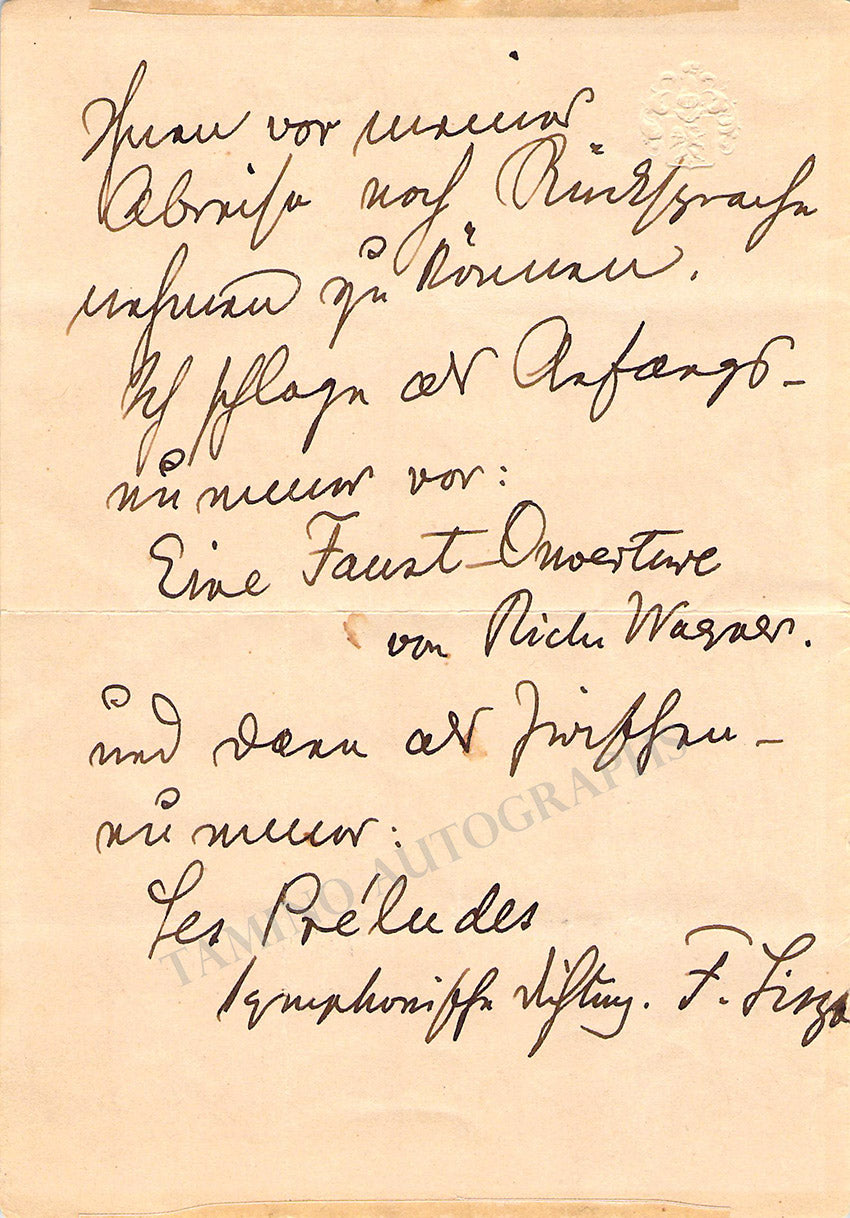 Ihnen vor meiner
Abreise noch Rücksprache
nehmen zu können.
Ich schlage als Anfangs-
nummer vor:
Eine Faust-Ouverture
von Rich. Wagner.
und dann als Zwischen-
nummer:
Les Préludes
symphonische Dichtung. F. Liszt
TAMINO AUTOGRAPHS